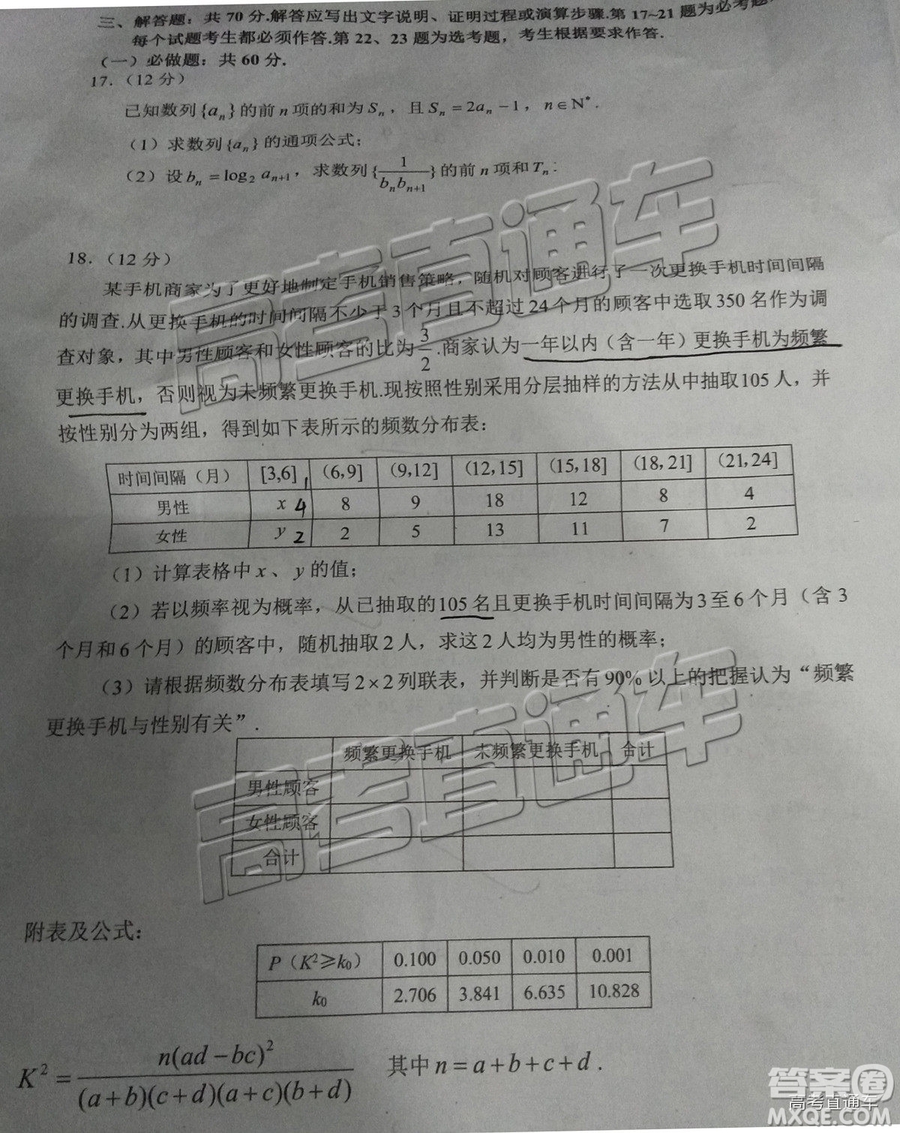 三、解答题：共 70 分.解答应写出文字说明、证明过程或演算步骤.第 17~21 题为必考题
每个试题考生都必须作答.第 22、23 题为选考题，考生根据要求作答.
（一）必做题：共 60 分.
17.（12 分）
已知数列{aₙ}的前 n 项的和为 Sₙ，且 Sₙ=2aₙ−1，n∈N*.
（1）求数列{aₙ}的通项公式；
（2）设 bₙ=log₂ aₙ₊₁，求数列{1/(bₙbₙ₊₁)}的前 n 项和 Tₙ.
18.（12 分）
某手机商家为了更好地制定手机销售策略，随机对顾客进行了一次更换手机时间间隔
的调查.从更换手机的时间间隔不少于 3 个月且不超过 24 个月的顾客中选取 350 名作为调
查对象，其中男性顾客和女性顾客的比为 3/2.商家认为一年以内（含一年）更换手机为频繁
更换手机，否则视为未频繁更换手机.现按照性别采用分层抽样的方法从中抽取105 人，并
按性别分为两组，得到如下表所示的频数分布表：
时间间隔（月） [3,6] (6,9] (9,12] (12,15] (15,18] (18,21] (21,24]
男性 x 4 8 9 18 12 8 4
女性 y 2 2 5 13 11 7 2
（1）计算表格中 x 、y 的值；
（2）若以频率视为概率，从已抽取的105 名且更换手机时间间隔为 3 至 6 个月（含 3
个月和 6 个月）的顾客中，随机抽取 2 人，求这 2 人均为男性的概率；
（3）请根据频数分布表填写 2×2 列联表，并判断是否有 90% 以上的把握认为“频繁
更换手机与性别有关”.
频繁更换手机 未频繁更换手机 合计
男性顾客
女性顾客
合计
附表及公式：
P（K²≥k₀） 0.100 0.050 0.010 0.001
k₀ 2.706 3.841 6.635 10.828
K² = n(ad−bc)² / ((a+b)(c+d)(a+c)(b+d)) 其中 n=a+b+c+d.
高考直通车
高考直通车
答案圈
高考直通车
MXQE.COM